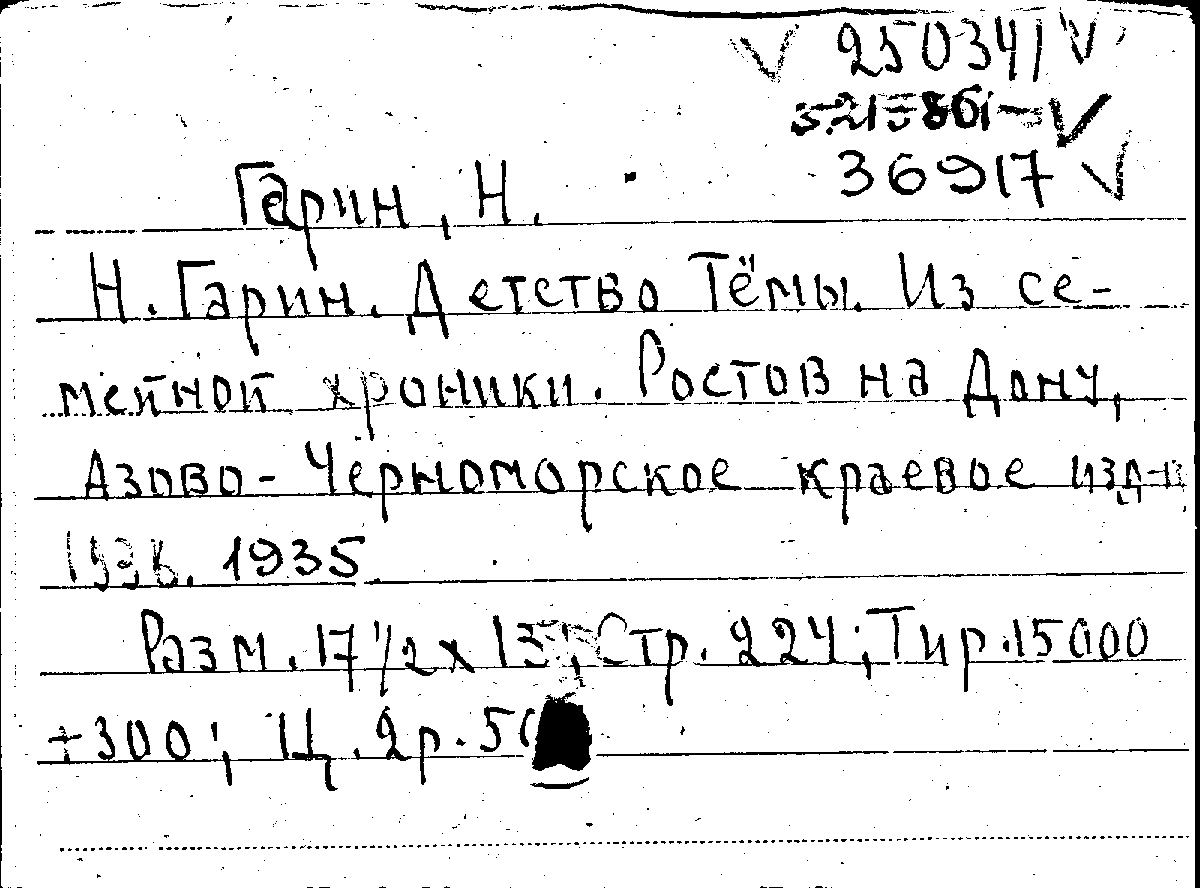 25034
36917
Гарин, Н.
Н. Гарин. Детство Тёмы. Из се-
мейной хроники. Ростов на Дону,
Азово-Черноморское краевое изд-
1935
Разм. 17 1/2 x 13; Стр. 224; Тир. 15000
+300; Ц. 2р.